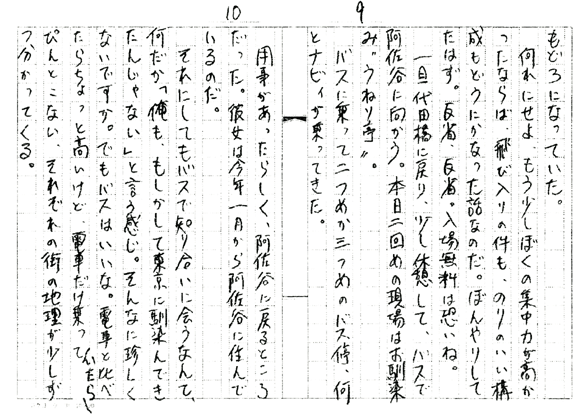 9
もどろになっていた。
何れにせよ、もう少しぼくの集中力が高か
ったならば、飛び入りの件も、のりのいい構
成もどうにかなった話なのだ。ぼんやりして
たはず。反省、反省。入場無料は恐いね。
一旦代田橋に戻り、少し休憩して、バスで
阿佐谷に向かう。本日二回めの現場はお馴染
み〝うねり亭〟。
バスに乗って二つめか三つめのバス停、何
とナビィが乗ってきた。
10
用事があったらしく、阿佐谷に戻るところ
だった。彼女は今年一月から阿佐谷に住んで
いるのだ。
それにしてもバスで知り合いに会うなんて、
何だか「俺も、もしかして東京に馴染んでき
たんじゃない」と言う感じ。そんなに珍しく
ないですか。でもバスはいいな。電車と比べ
たらちょっと高いけど、電車だけ乗っていたら、
ぴんとこない、それぞれの街の地理が少しず
つ分かってくる。